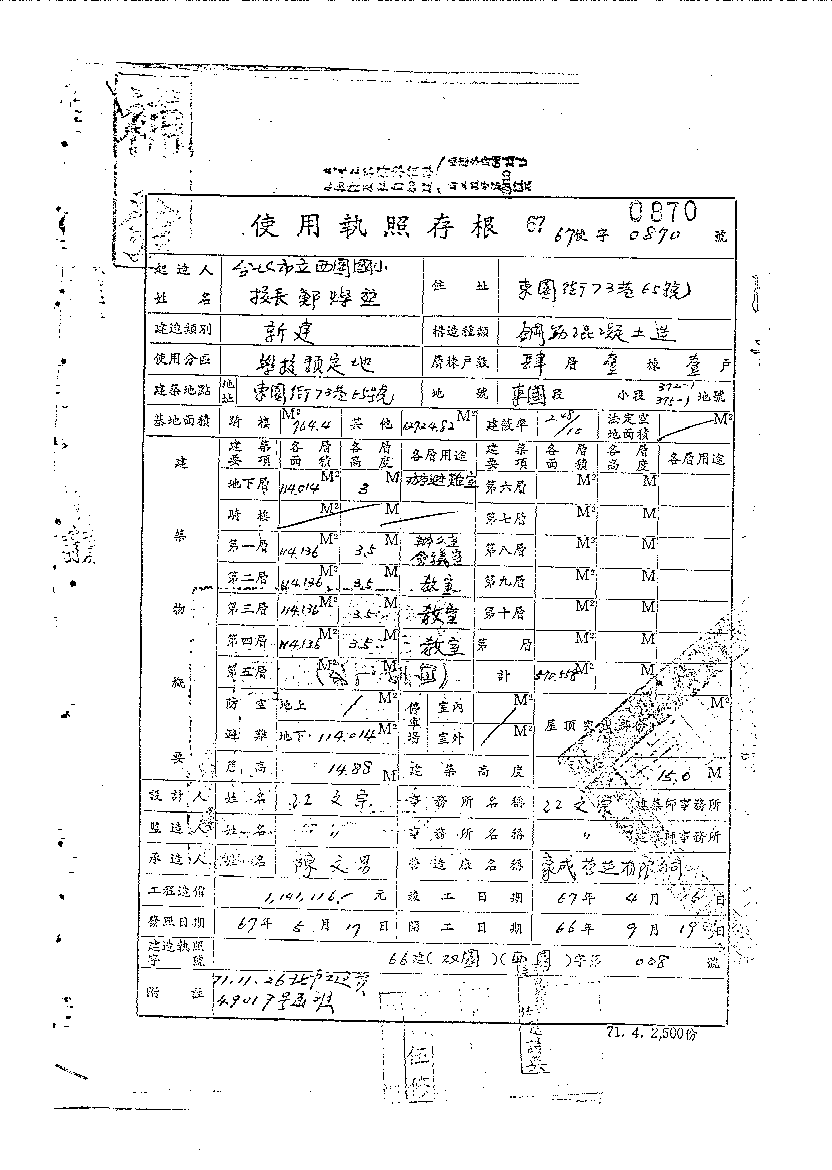 0870
使用執照存根 67 67使字 0870 號
起造人姓名 台北市立西園國小 校長鄭燦堂 住址 東園街73巷65號
建造類別 新建 構造種類 鋼筋混凝土造
使用分區 學校預定地 層棟戶數 肆層壹棟壹戶
建築地點 地址 東園街73巷65號 地號 東園段 小段 372-1 375-1 地號
基地面積 騎樓 764.4 M² 其他 12724.82 M² 建蔽率 2.48/10 法定空地面積 M²
建築物概要
建築要項 各層面積 各層高度 各層用途 建築要項 各層面積 各層高度 各層用途
地下層 114.014 M² 3 M 防空避難室 第六層 M² M
騎樓 M² M 第七層 M² M
第一層 114.136 M² 3.5 M 辦公室 會議室 第八層 M² M
第二層 114.136 M² 3.5 M 教室 第九層 M² M
第三層 114.136 M² 3.5 M 教室 第十層 M² M
第四層 114.136 M² 3.5 M 教室 第 層 M² M
第五層 M² M 計 570.558 M²
防空避難 地上 M² 停車場 室內 M² 屋頂突出部份 M²
地下 114.014 M² 室外 M²
簷高 14.88 M 建築高度 15.0 M
設計人 姓名 文宗 事務所名稱 文宗 建築師事務所
監造人 姓名 〃 事務所名稱 〃 建築師事務所
承造人 姓名 陳文男 營造廠名稱
工程造價 1,141,116.- 元 竣工日期 67年4月16日
發照日期 67年5月17日 開工日期 66年9月19日
建造執照字號 66建(双園)(西園)字第 008 號
附註 71.11.26
49017號
71. 4. 2,500份